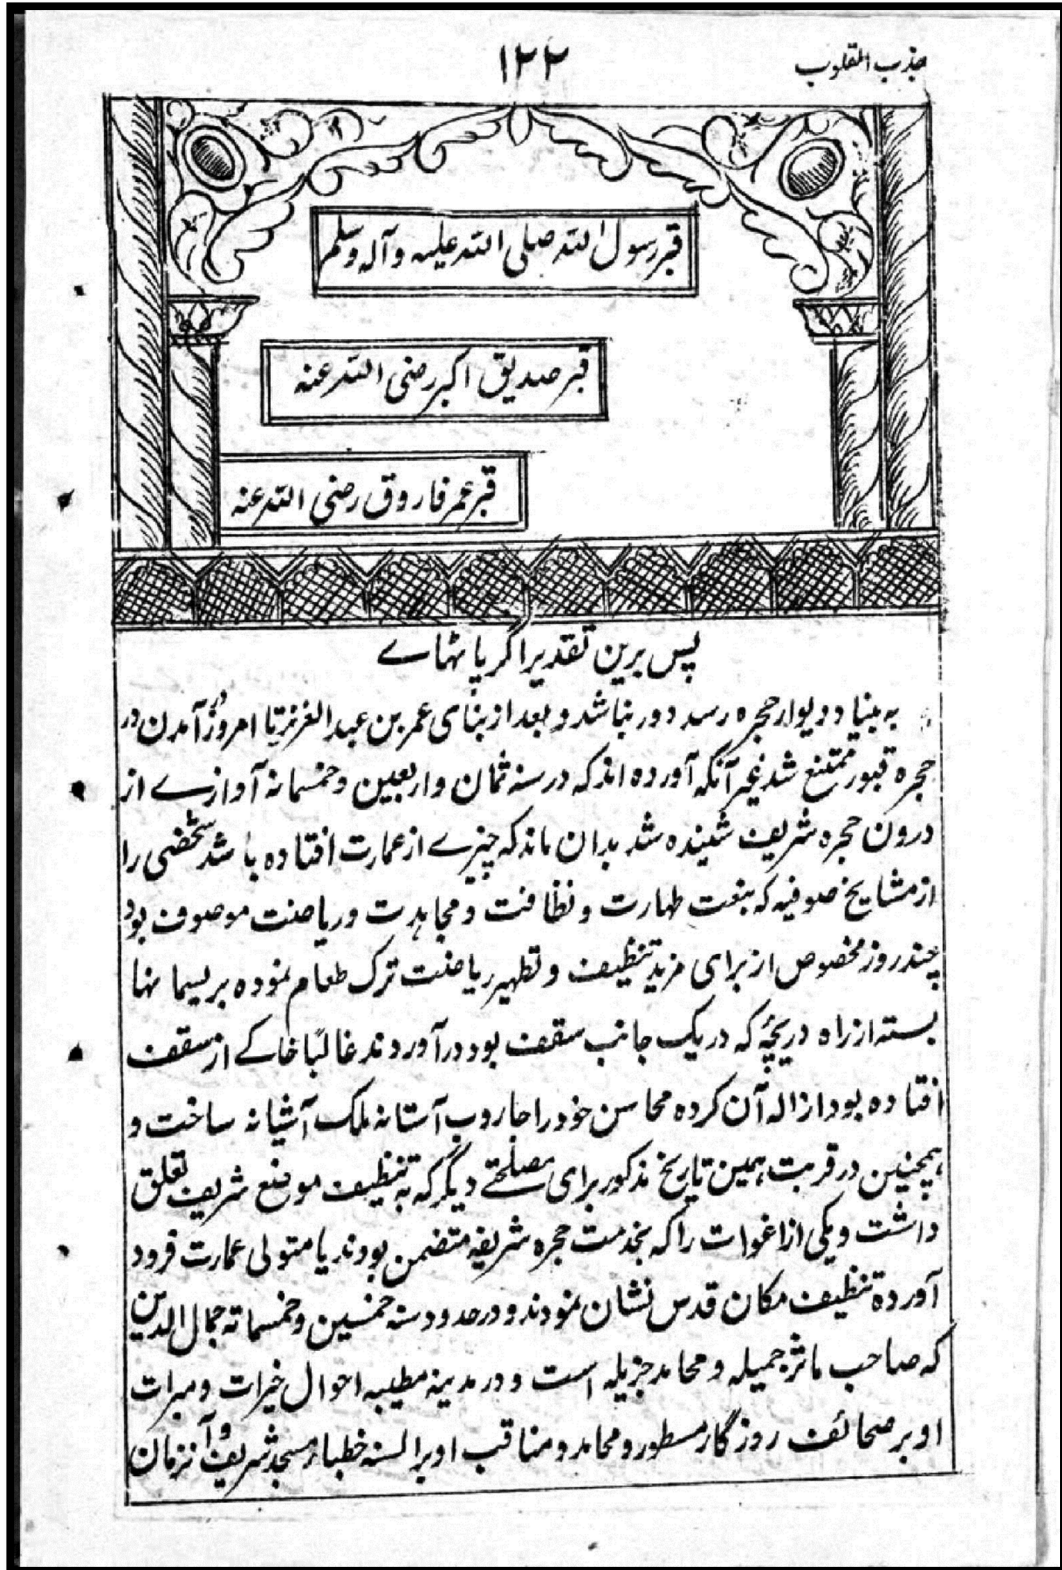 جذب القلوب
۱۲۲
قبر رسول الله صلی الله علیه وآله وسلم
قبر صدیق اکبر رضی الله عنه
قبر عمر فاروق رضی الله عنه
پس برین تقدیر اگر پا نهاے
به بنیاد دیوار حجره رسد دور نباشد و بعد از بنای عمر بن عبد العزیز تا امروز در آمدن در
حجره قبور ممتنع شد غیر آنکه آورده اند که در سنه ثمان و اربعین و خمسمائه آوازے از
درون حجره شریف شنیده شد بدان ماند که چیزے از عمارت افتاده باشد شخصی را
از مشایخ صوفیه که بنعت طهارت و نظافت و مجاهدت و ریاضت موصوف بود
چند روز مخصوص از برای مزید تنظیف و تطهیر ریاضت ترک طعام نموده بریسمانها
بسته از راه دریچهٔ که در یک جانب سقف بود در آوردند غالباً خاکے از سقف
افتاده بود ازاله آن کرده محاسن خود را جاروب آستانه ملک آشیانه ساخت و
همچنین در قربت همین تاریخ مذکور برای مصلحتے دیگر که به تنظیف موضع شریف تعلق
داشت و یکی از اغوات را که بخدمت حجره شریفه متضمن بودند یا متولی عمارت فرود
آورده تنظیف مکان قدس نشان نمودند و در حدود سنه خمسین و خمسمائه جمال الدین
که صاحب ماثر جمیله و محامد جزیله است و در مدینه مطیبه احوال خیرات و مبرات
او بر صحائف روزگار مسطور و محامد و مناقب او بر السنه خطباء مسجد شریف و آنزمان